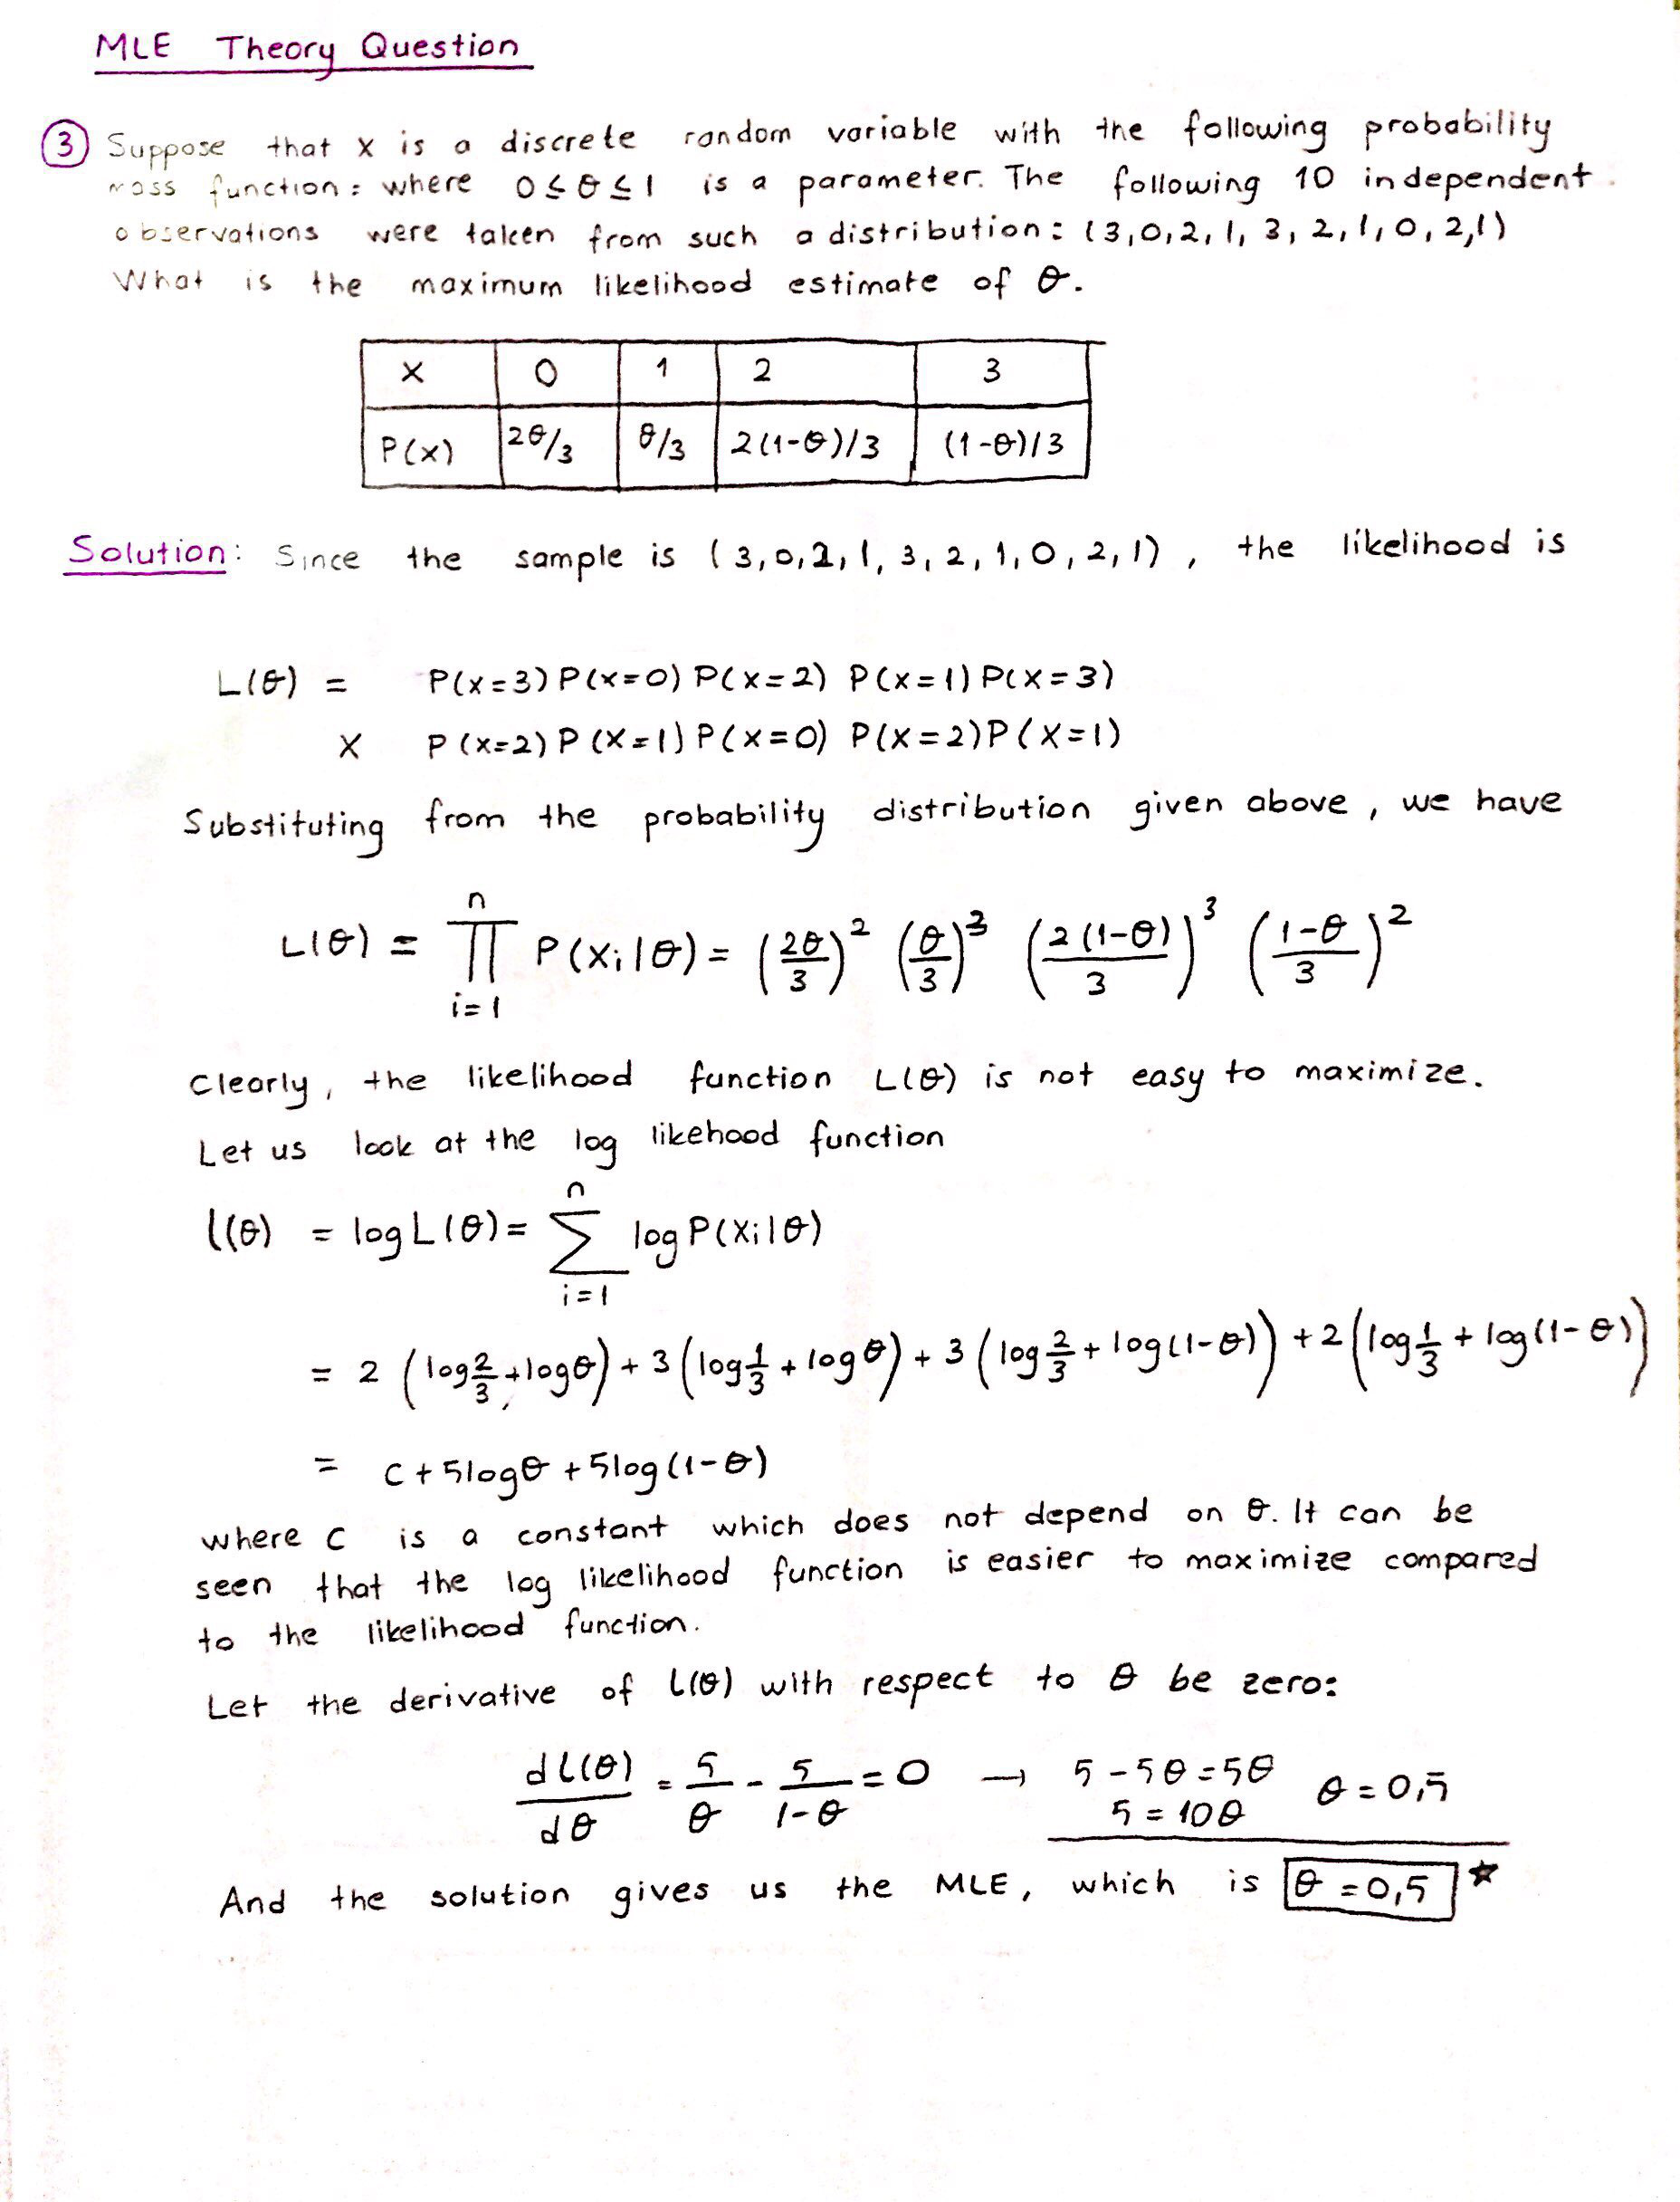 MLE Theory Question
3 Suppose that x is a discrete random variable with the following probability
mass function: where 0≤θ≤1 is a parameter. The following 10 independent
observations were taken from such a distribution: (3,0,2,1,3,2,1,0,2,1)
What is the maximum likelihood estimate of θ.
X 0 1 2 3
P(x) 2θ/3 θ/3 2(1-θ)/3 (1-θ)/3
Solution: Since the sample is (3,0,2,1,3,2,1,0,2,1), the likelihood is
L(θ) = P(x=3) P(x=0) P(x=2) P(x=1) P(x=3)
X P(x=2) P(X=1) P(x=0) P(x=2) P(X=1)
Substituting from the probability distribution given above, we have
L(θ) = ∏_{i=1}^{n} P(xi|θ) = (2θ/3)² (θ/3)³ (2(1-θ)/3)³ (1-θ/3)²
Clearly, the likelihood function L(θ) is not easy to maximize.
Let us look at the log likehood function
l(θ) = log L(θ) = ∑_{i=1}^{n} log P(Xi|θ)
= 2 (log 2/3 + logθ) + 3 (log 1/3 + logθ) + 3 (log 2/3 + log(1-θ)) + 2 (log 1/3 + log(1-θ))
= C + 5logθ + 5log(1-θ)
where C is a constant which does not depend on θ. It can be
seen that the log likelihood function is easier to maximize compared
to the likelihood function.
Let the derivative of l(θ) with respect to θ be zero:
dl(θ)/dθ = 5/θ - 5/1-θ = 0 → 5-5θ=5θ θ=0,5
5=10θ
And the solution gives us the MLE, which is θ=0,5 ★